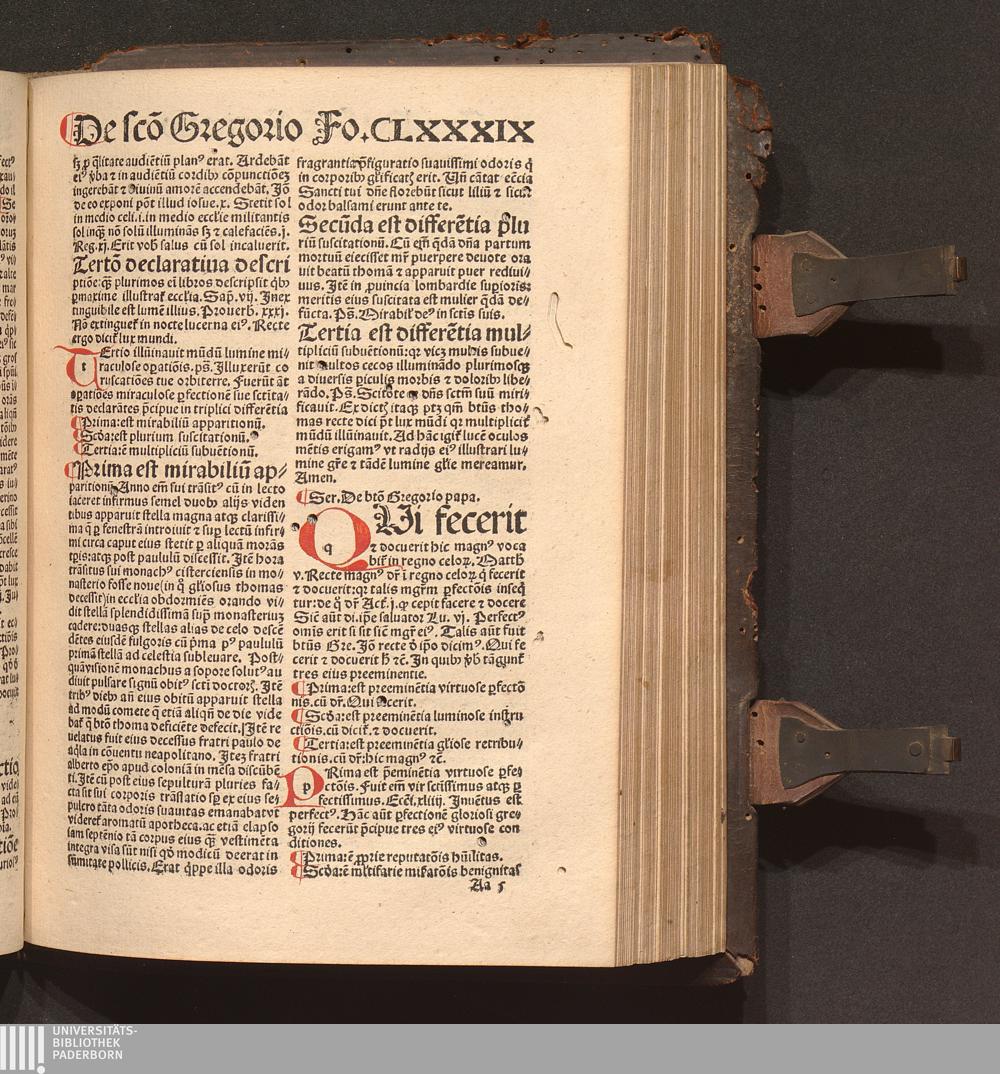 De scō Gregorio Fo. CLXXXIX
sꝫ ꝑ q̈litate audiētiū planꝰ erat. Ardebāt
eiꝰ ꝟba ⁊ in audiētiū cordibꝰ cōpunctiōeꝫ
ingerebāt ⁊ diuinū amorē accendebāt. Iō
de eo exponi pōt illud iosue. x. Stetit sol
in medio celi. i. in medio eccl'ie militantis
sol inqꝫ nō solū illuminās sꝫ ⁊ calefaciēs. ij.
Reg. xj. Erit vob̄ salus cū sol incaluerit.
Tertō declaratiua descri
ptiōe: qꝫ plurimos eī libros descripsit qb̄ꝰ
ꝑmaxime illustrat̄ eccl'ia. Sap̄. vij. Inex
tinguibile est lumē illius. Prouerb. xxxj.
Nō extinguet̄ in nocte lucerna eiꝰ. Recte
ergo dicit̄ lux mundi.
Tertio illūinauit mūdū lumine mi/
raculose oꝑatiōis. ps̄. Illuxerūt co
ruscatiōes tue orbi terre. Fuerūt āt
oꝑatiōes miraculose ꝑfectionē sue sctīta/
tis declarātes p̄cipue in triplici differētia
¶ Prima: est mirabiliū apparitionū.
¶ Scd̄a: est plurium suscitationū.
¶ Tertia: ē multipliciū subuētionū.
¶ Prima est mirabiliū ap/
paritionū. Anno em̄ sui trāsitꝰ cū in lecto
iaceret infirmus semel duobꝰ alijs viden
tibus apparuit stella magna atqꝫ clarissi/
ma q̄ ꝑ fenestrā introiuit ⁊ suꝑ lectū infir/
mi circa caput eius stetit ꝑ aliquā morās
tp̄is: atqꝫ post paululū discessit. Itē hora
trāsitus sui monachꝰ cisterciensis in mo/
nasterio fosse noue (in q̊ gl'iosus thomas
decessit) in eccl'ia obdormiēs orando vi/
dit stellā splendidissimā sup̄ monasteriuꝫ
cadere: duasqꝫ stellas alias de celo descē
dētes eiusdē fulgoris cū p̄ma pꝰ paululū
primā stellā ad celestia subleuare. Post/
quā visionē monachus a sopore solutꝰ au
diuit pulsare signū obitꝰ scti doctorꝭ. Itē
tribꝰ diebꝰ añ eius obitū apparuit stella
ad modū comete q̄ etiā aliqñ de die vide
bat̄ q̄ btō thoma deficiēte defecit. Itē re
uelatus fuit eius decessus fratri paulo de
aq̄la in cōuentu neapolitano. Iteꝫ fratri
alberto ep̄o apud coloniā in mēsa discūbē
ti. Itē cū post eius sepulturā pluries fa/
cta sit sui corporis trāslatio sp̄ ex eius se/
pulcro tāta odoris suauitas emanabat vt
videret̄ aromatū apotheca. ac etiā elapso
iam septēnio tā corpus eius qꝫ vestimēta
integra visa sūt nisi qd̄ modicū deerat in
sūmitate pollicis. Erat q̄ppe illa odoris
fragrantia p̄figuratio suauissimi odoris q̄
in corporibꝰ gl'ificatꝭ erit. Uñ cātat eccīa
Sancti tui dñe florebūt sicut liliū ⁊ sicut
odor balsami erunt ante te.
Secūda est differētia plu
riū suscitationū. Cū em̄ q̄dā dña partum
mortuū eiecisset mr̄ puerpere deuote ora
uit beatū thomā ⁊ apparuit puer rediui/
uus. Itē in ꝓuincia lombardie superioris
meritis eius suscitata est mulier q̄dā de/
fūcta. Ps̄. Mirabil' deꝰ in sctīs suis.
Tertia est differētia mul/
tipliciū subuētionū: qꝛ vicꝫ multis subue/
nit Multos cecos illuminādo plurimosqꝫ
a diuersis ꝑiculis morbis ⁊ doloribꝰ libe/
rādo. Ps̄. Scitote qm̄ dñs sctm̄ suū miri/
ficauit. Ex dictꝭ itaqꝫ ptꝫ qm̄ btūs tho/
mas recte dici pōt lux mūdi qꝛ multiplicit̄
mūdū illūinauit. Ad hāc igit̄ lucē oculos
mētis erigamꝰ vt radijs eiꝰ illustrari lu/
mine gr̄e ⁊ tādē lumine gl'ie mereamur.
Amen.
¶ Ser. De btō Gregorio papa.
QUi fecerit
⁊ docuerit hic magnꝰ voca
bit̄ in regno celoꝝ. Matth
v. Recte magnꝰ dr̄ ī regno celoꝝ q̄ fecerit
⁊ docuerit: qꝛ talis mgr̄m ꝑfectōis inseq̄
tur: de q̊ dr̄ Act. j. ꝙ cepit facere ⁊ docere
Sic aūt di. ip̄e saluator Lu. vj. Perfectꝰ
omīs erit si sit sic mgr̄ eiꝰ. Talis aūt fuit
btūs Gre. Iō recte d̄ ip̄o dicimꝰ. Qui fe
cerit ⁊ docuerit h̄ ⁊c̄. In quibꝰ ꝟb̄ tāgunt̄
tres eius preeminentie.
¶ Prima: est preeminētia virtuose ꝑfectō
nis. cū dr̄. Qui fecerit.
¶ Scd̄a: est preeminētia luminose instru
ctiōis. cū dicit̄. ⁊ docuerit.
¶ Tertia: est preeminētia gl'iose retribu/
tionis. cū dr̄: hic magnꝰ ⁊c̄.
PRima est p̄eminētia virtuose ꝑfe/
ctōis. Fuit em̄ vir sctissimus atqꝫ ꝑ
fectissimus. Ecci. xliiij. Inuētus est
perfectꝰ. Hāc aūt ꝑfectionē gloriosi gre/
gorij fecerūt p̄cipue tres eiꝰ virtuose con
ditiones.
¶ Prima: ē ꝓprie reputatōis hūilitas.
¶ Scd̄a: ē mltifarie misatōis benignitas
Aa 5
UNIVERSITÄTS-
BIBLIOTHEK
PADERBORN